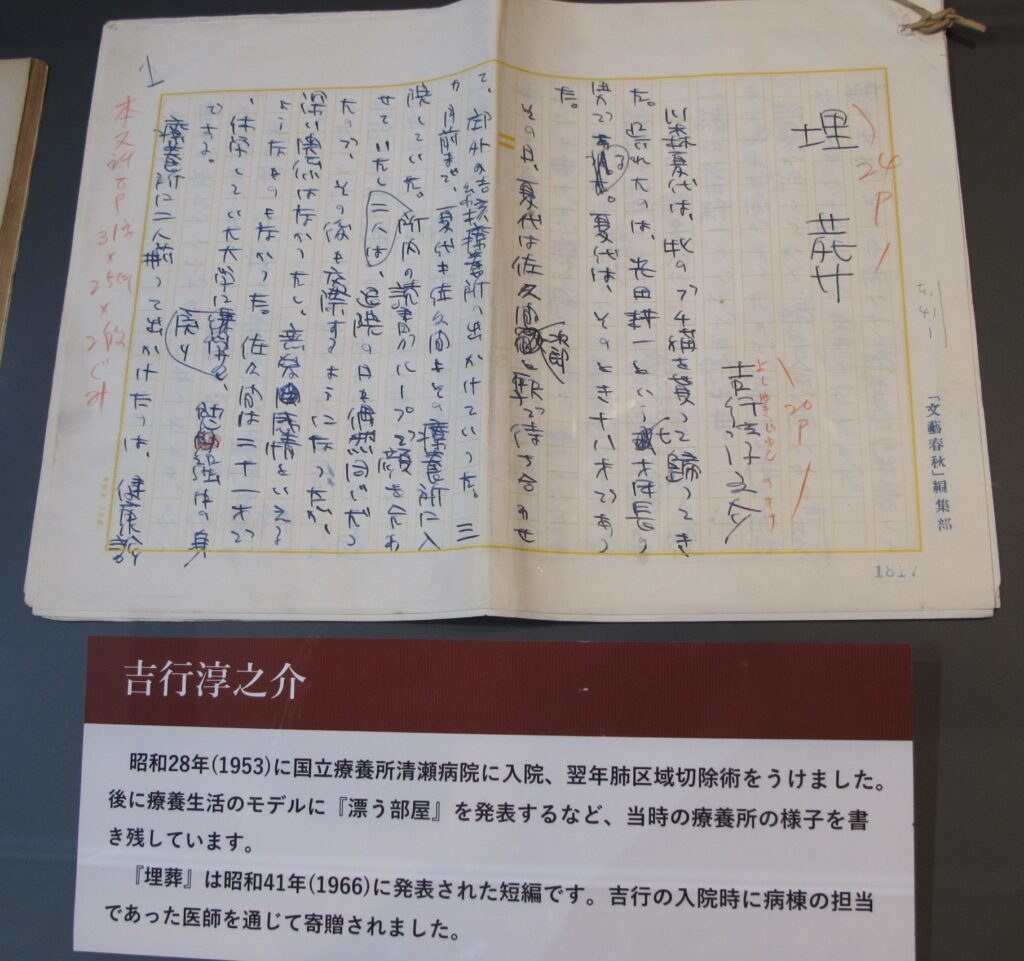 埋葬
吉行淳之介
よしゆきじゅんのすけ
24P
20P
川森夏代は、牝のブチ猫を貰って帰ってき
た。呉れたのは、光田耕一という
男である。夏代は、そのとき十八才であっ
た。
その日、夏代は佐久間次郎と駅で待ち合わせ
て、郊外の結核療養所へ出かけていった。三
か月前まで、夏代も佐久間もその療養所に入
院していた。所内の読書グループで顔を合わ
せていたし二人は、退院の日も偶然同じだっ
たので、その後も交際するようになったが、
深い
ようなものもなかった。佐久間は二十一才で
、休学していた大学に戻り、
できる。
療養所に二人揃って出かけたのは、健康診
1
「文藝春秋」編集部
1817
吉行淳之介
昭和28年(1953)に国立療養所清瀬病院に入院、翌年肺区域切除術をうけました。
後に療養生活のモデルに『漂う部屋』を発表するなど、当時の療養所の様子を書
き残しています。
『埋葬』は昭和41年(1966)に発表された短編です。吉行の入院時に病棟の担当
であった医師を通じて寄贈されました。